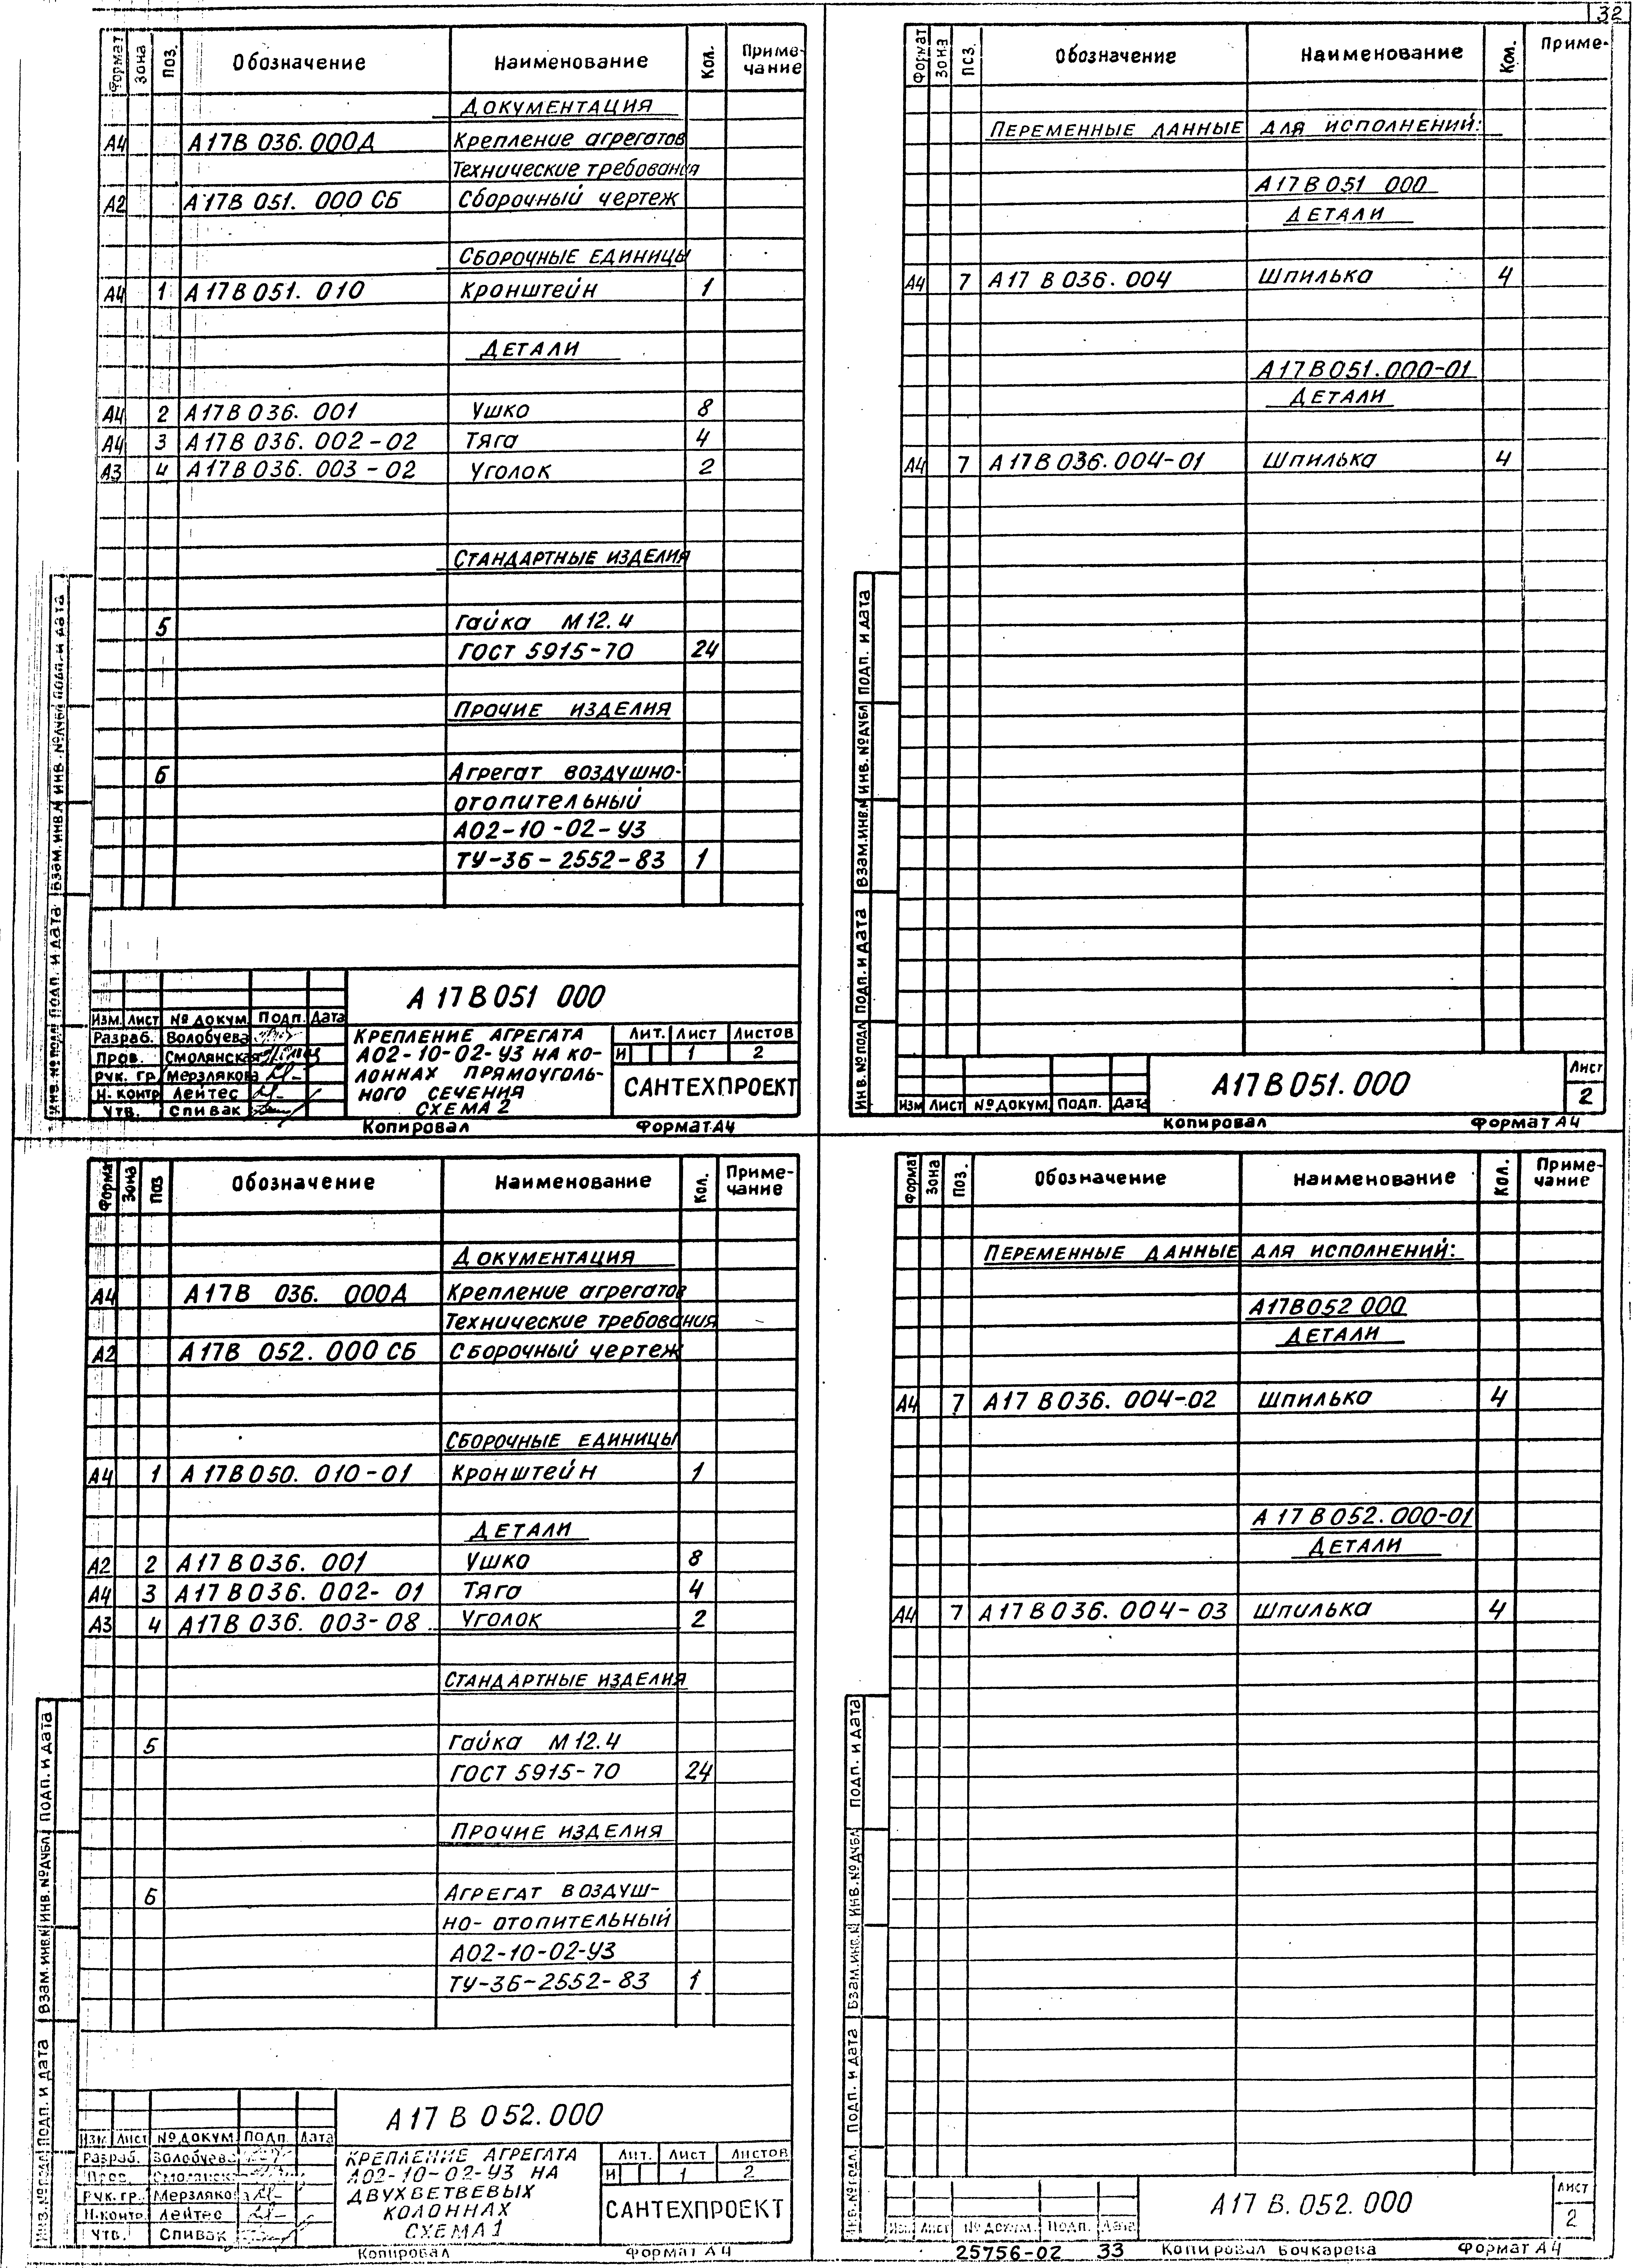 32
Формат Зона Поз. Обозначение Наименование Кол. Приме-чание
ДОКУМЕНТАЦИЯ
А4 А17В 036.000Д Крепление агрегатов
Технические требования
А2 А17В 051. 000 СБ Сборочный чертеж
СБОРОЧНЫЕ ЕДИНИЦЫ
А4 1 А17В051. 010 Кронштейн 1
ДЕТАЛИ
А4 2 А17В 036. 001 Ушко 8
А4 3 А17В 036. 002-02 Тяга 4
А3 4 А17В 036. 003-02 Уголок 2
СТАНДАРТНЫЕ ИЗДЕЛИЯ
5 Гайка М12.4
ГОСТ 5915-70 24
ПРОЧИЕ ИЗДЕЛИЯ
6 Агрегат воздушно-
отопительный
А02-10-02-У3
ТУ-36-2552-83 1
Инв.№подл Подп. и дата Взам.инв.№ Инв.№дубл Подп. и дата
А 17 В 051 000
Изм. Лист № докум. Подп. Дата
Разраб. Волобуева
Пров. Смолянская
Рук. гр. Мерзлякова
Н. контр Лейтес
Утв. Спивак
КРЕПЛЕНИЕ АГРЕГАТА
А02-10-02-У3 НА КО-
ЛОННАХ ПРЯМОУГОЛЬ-
НОГО СЕЧЕНИЯ
СХЕМА 2
Лит. Лист Листов
И 1 2
САНТЕХПРОЕКТ
Копировал Формат А4
Формат Зона Поз. Обозначение Наименование Кол. Приме-
ПЕРЕМЕННЫЕ ДАННЫЕ ДЛЯ ИСПОЛНЕНИЙ:
А17В051 000
ДЕТАЛИ
А4 7 А17 В 036. 004 Шпилька 4
А17В051.000-01
ДЕТАЛИ
А4 7 А17В036.004-01 Шпилька 4
Инв.№подл Подп. и дата Взам.инв.№ Инв.№дубл Подп. и дата
Изм Лист № докум. Подп. Дата
А17В051.000
Лист
2
Копировал Формат А4
Формат Зона Поз Обозначение Наименование Кол. Приме-чание
ДОКУМЕНТАЦИЯ
А4 А17В 036. 000Д Крепление агрегатов
Технические требования
А2 А17В 052. 000 СБ Сборочный чертеж
СБОРОЧНЫЕ ЕДИНИЦЫ
А4 1 А17В050. 010-01 Кронштейн 1
ДЕТАЛИ
А2 2 А17В036. 001 Ушко 8
А4 3 А17В036. 002-01 Тяга 4
А3 4 А17В036. 003-08 Уголок 2
СТАНДАРТНЫЕ ИЗДЕЛИЯ
5 Гайка М12.4
ГОСТ 5915-70 24
ПРОЧИЕ ИЗДЕЛИЯ
6 АГРЕГАТ ВОЗДУШ-
НО-ОТОПИТЕЛЬНЫЙ
А02-10-02-У3
ТУ-36-2552-83 1
Инв.№подл Подп. и дата Взам.инв.№ Инв.№дубл Подп. и дата
А17 В 052.000
Изм Лист № докум. Подп. Дата
Разраб. Волобуева
Пров. Смолянская
Рук. гр. Мерзлякова
Н.контр Лейтес
Утв. Спивак
КРЕПЛЕНИЕ АГРЕГАТА
А02-10-02-У3 НА
ДВУХВЕТВЕВЫХ
КОЛОННАХ
СХЕМА 1
Лит. Лист Листов
И 1 2
САНТЕХПРОЕКТ
Копировал Формат А4
Формат Зона Поз. Обозначение Наименование Кол. Приме-чание
ПЕРЕМЕННЫЕ ДАННЫЕ ДЛЯ ИСПОЛНЕНИЙ:
А17В052 000
ДЕТАЛИ
А4 7 А17 В036. 004-02 Шпилька 4
А 17 В 052.000-01
ДЕТАЛИ
А4 7 А17В036. 004-03 Шпилька 4
Инв.№подл. Подп. и дата Взам.инв.№ Инв.№дубл Подп. и дата
Изм Лист № докум. Подп. Дата
А17 В.052.000
Лист
2
25756-02 33 Копировал Бочкарева Формат А4